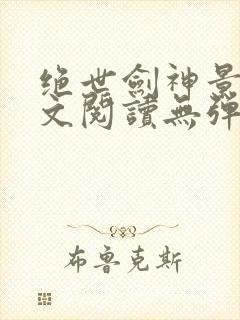 绝世劍神景
文閱讀無彈
布魯克斯